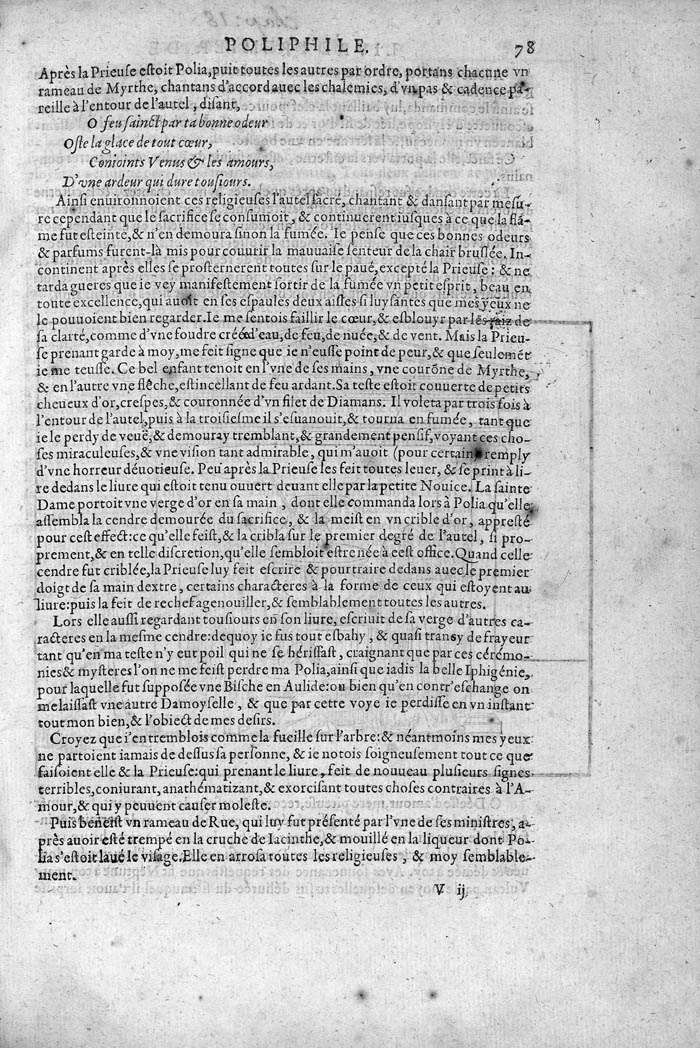 POLIPHILE. 78
Après la Prieuse estoit Polia, puit toutes les autres par ordre, portans chacune vn
rameau de Myrthe, chantans d'accord auec les chalemies, d'vn pas & cadence pa-
reille à l'entour de l'autel, disant,
O feu sainct par ta bonne odeur
Oste la glace de tout cœur,
Conioints Venus & les amours,
D'vne ardeur qui dure tousiours.
Ainsi enuironnoient ces religieuses l'autel sacre, chantant & dansant par mesu-
re cependant que le sacrifice se consumoit, & continuerent iusques à ce que la flā-
me fut esteinte, & n'en demoura sinon la fumée. Ie pense que ces bonnes odeurs
& parfums furent-là mis pour couurir la mauuaise senteur de la chair bruslée. In-
continent après elles se prosternerent toutes sur le paué, excepté la Prieuse: & ne
tarda gueres que ie vey manifestement sortir de la fumée vn petit esprit, beau en
toute excellence, qui auoit en ses espaules deux aisles si luysantes que mes yeux ne
le pouuoient bien regarder. Ie me sentois faillir le cœur, & esblouyr par les raiz de
sa clarté, comme d'vne foudre créée d'eau, de feu, de nuée, & de vent. Mais la Prieu-
se prenant garde à moy, me feit signe que ie n'eusse point de peur, & que seulemēt
ie me teusse. Ce bel enfant tenoit en l'vne de ses mains, vne courōne de Myrthe,
& en l'autre vne flêche, estincellant de feu ardant. Sa teste estoit couuerte de petits
cheueux d'or, crespes, & couronnée d'vn filet de Diamans. Il voleta par trois fois à
l'entour de l'autel, puis à la troisiesme il s'esuanouit, & tourna en fumée, tant que
ie le perdy de veuë, & demouray tremblant, & grandement pensif, voyant ces cho-
ses miraculeuses, & vne vision tant admirable, qui m'auoit (pour certain) remply
d'vne horreur déuotieuse. Peu après la Prieuse les feit toutes leuer, & se print à li-
re dedans le liure qui estoit tenu ouuert deuant elle par la petite Nouice. La sainte
Dame portoit vne verge d'or en sa main, dont elle commanda lors à Polia qu'elle
assembla la cendre demourée du sacrifice, & la meist en vn crible d'or, appresté
pour cest effect: ce qu'elle feist, & la cribla sur le premier degré de l'autel, si pro-
prement, & en telle discretion, qu'elle sembloit estre née à cest office. Quand celle
cendre fut criblée, la Prieuse luy feit escrire & pourtraire dedans auec le premier
doigt de sa main dextre, certains characteres à la forme de ceux qui estoyent au
liure: puis la feit de rechef agenouiller, & semblablement toutes les autres.
Lors elle aussi regardant tousiours en son liure, escriuit de sa verge d'autres ca-
racteres en la mesme cendre: dequoy ie fus tout esbahy, & quasi transy de frayeur
tant qu'en ma teste n'y eut poil qui ne se hérissast, craignant que par ces cérémo-
nies & mysteres l'on ne me feist perdre ma Polia, ainsi que iadis la belle Iphigénie,
pour laquelle fut supposée vne Bische en Aulide: ou bien qu'en contr'eschange on
me laissast vne autre Damoyselle, & que par cette voye ie perdisse en vn instant
tout mon bien, & l'obiect de mes desirs.
Croyez que i'en tremblois comme la fueille sur l'arbre: & néantmoins mes yeux
ne partoient iamais de dessus sa personne, & ie notois soigneusement tout ce que
faisoient elle & la Prieuse: qui prenant le liure, feit de nouueau plusieurs signes
terribles, coniurant, anathématizant, & exorcisant toutes choses contraires à l'A-
mour, & qui y peuuent causer moleste.
Puis beneist vn rameau de Rue, qui luy fut présenté par l'vne de ses ministres, a-
près auoir esté trempé en la cruche de Iacinthe, & mouillé en la liqueur dont Po-
lia s'estoit laué le visage. Elle en arrosa toutes les religieuses, & moy semblable-
ment.
V ij